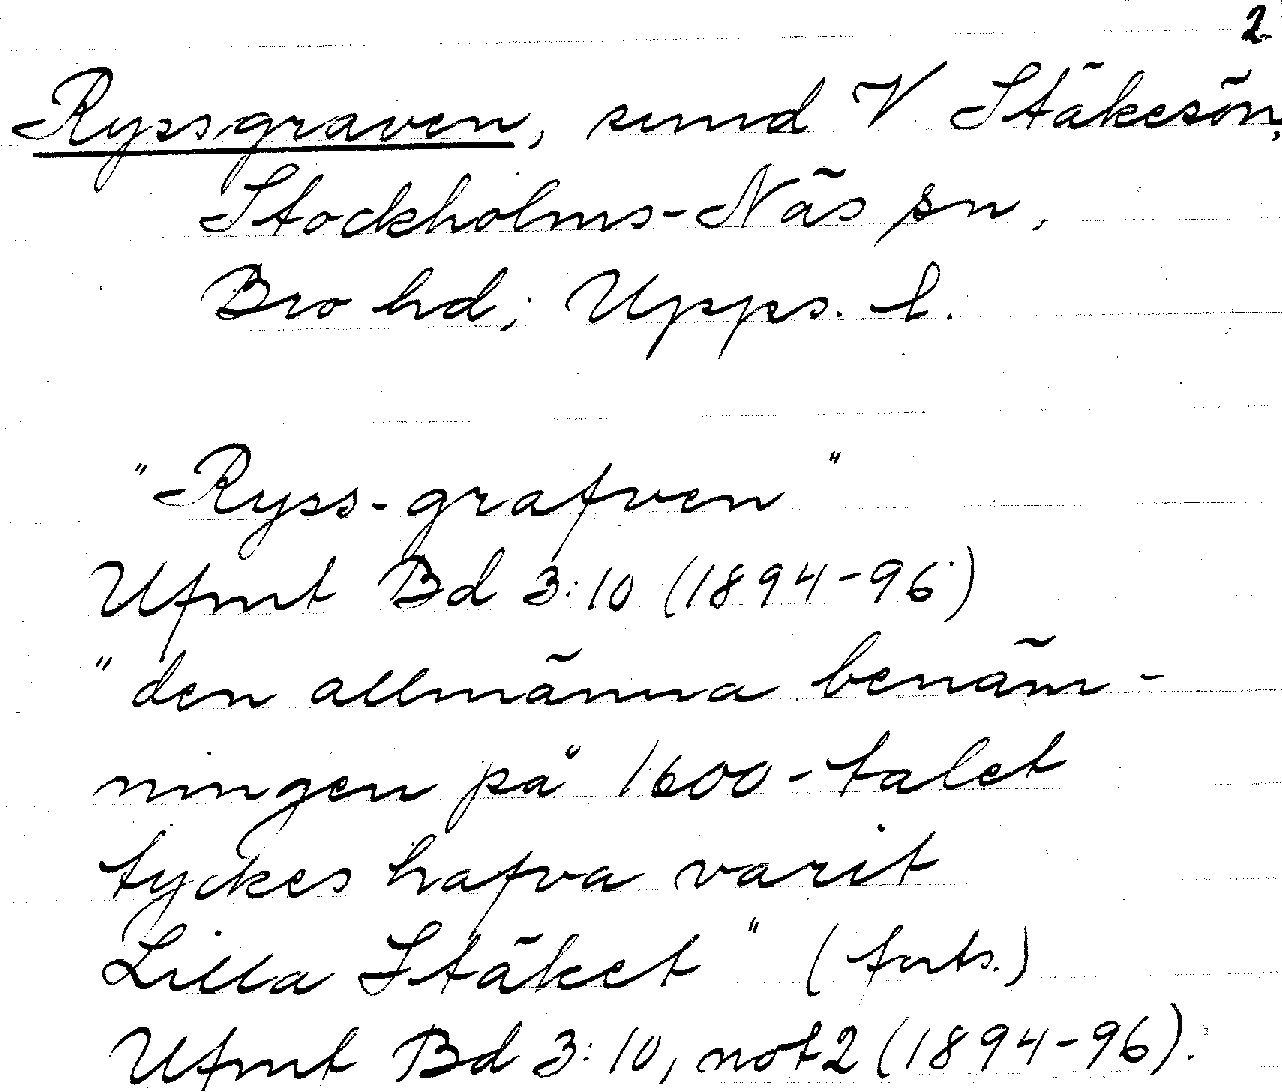 2
Ryssgraven, sund V Stäkesön,
Stockholms-Näs sn,
Bro hd; Upps. l.
"Ryss-grafven"
Ufmt Bd 3:10 (1894-96)
"den allmänna benäm-
ningen på 1600-talet
tyckes hafva varit
Lilla Stäket" (forts.)
Ufmt Bd 3:10, not 2 (1894-96).